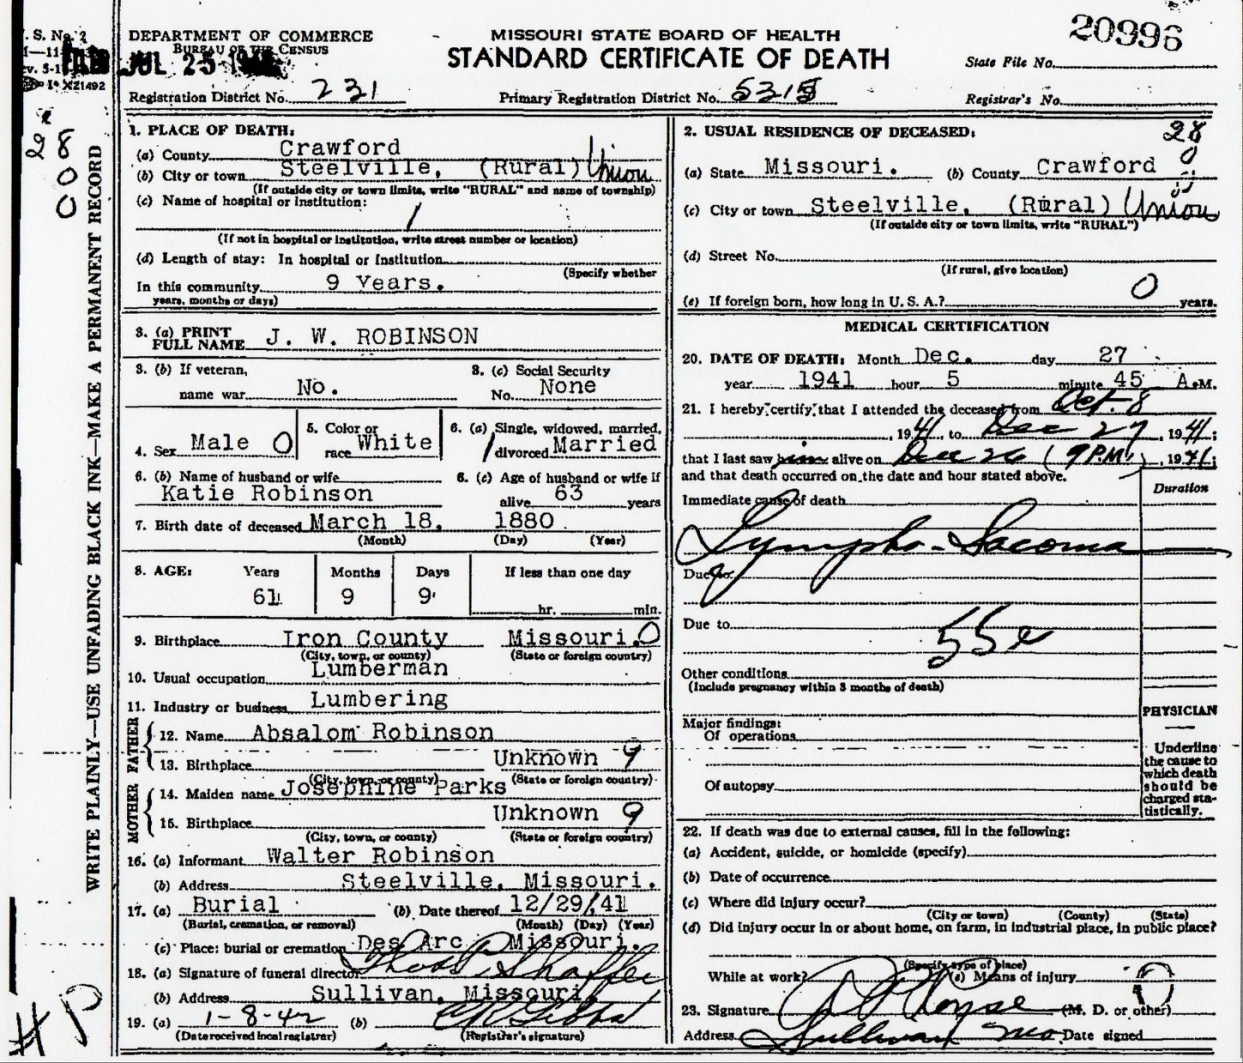 20996
DEPARTMENT OF COMMERCE
BUREAU OF THE CENSUS
MISSOURI STATE BOARD OF HEALTH
STANDARD CERTIFICATE OF DEATH
State File No.
JUL 25
X21492
Registration District No. 231
Primary Registration District No.
Registrar's No.
28
0
0
WRITE PLAINLY—USE UNFADING BLACK INK—MAKE A PERMANENT RECORD
1. PLACE OF DEATH:
(a) County Crawford
(b) City or town Steelville, (Rural) Union
(If outside city or town limits, write "RURAL" and name of township)
(c) Name of hospital or institution:
(If not in hospital or institution, write street number or location)
(d) Length of stay: In hospital or institution
(Specify whether
In this community 9 Years.
years, months or days)
3. (a) PRINT FULL NAME J. W. ROBINSON
3. (b) If veteran, name war No.
3. (c) Social Security No. None
4. Sex Male 0
5. Color or race White
6. (a) Single, widowed, married, divorced Married
6. (b) Name of husband or wife Katie Robinson
6. (c) Age of husband or wife if alive 63 years
7. Birth date of deceased March 18, 1880
(Month) (Day) (Year)
8. AGE: Years Months Days If less than one day
61 9 9 hr. min.
9. Birthplace Iron County Missouri. 0
(City, town, or county) (State or foreign country)
10. Usual occupation Lumberman
11. Industry or business Lumbering
FATHER
12. Name Absalom Robinson
13. Birthplace Unknown 9
(City, town, or county) (State or foreign country)
MOTHER
14. Maiden name Josephine Parks
15. Birthplace Unknown 9
(City, town, or county) (State or foreign country)
16. (a) Informant Walter Robinson
(b) Address Steelville, Missouri.
17. (a) Burial (b) Date thereof 12/29/41
(Burial, cremation, or removal) (Month) (Day) (Year)
(c) Place: burial or cremation Des Arc, Missouri.
18. (a) Signature of funeral director Thos P Shaffer
(b) Address Sullivan, Missouri.
19. (a) 1-8-42 (b)
(Date received local registrar) (Registrar's signature)
2. USUAL RESIDENCE OF DECEASED: 28
(a) State Missouri. (b) County Crawford
(c) City or town Steelville, (Rural) Union
(If outside city or town limits, write "RURAL")
(d) Street No.
(If rural, give location)
(e) If foreign born, how long in U. S. A.? 0 years.
MEDICAL CERTIFICATION
20. DATE OF DEATH: Month Dec. day 27
year 1941 hour 5 minute 45 A.M.
21. I hereby certify that I attended the deceased from Oct. 8
, 1941 to Dec 27, 1941;
that I last saw him alive on Dec 26 (9 P.M.), 1941;
and that death occurred on the date and hour stated above.
Immediate cause of death Duration
Lympho-Sacoma
Due to
Due to
55e
Other conditions
(Include pregnancy within 3 months of death)
Major findings:
Of operations
Of autopsy
PHYSICIAN
Underline the cause to which death should be charged statistically.
22. If death was due to external causes, fill in the following:
(a) Accident, suicide, or homicide (specify)
(b) Date of occurrence
(c) Where did injury occur?
(City or town) (County) (State)
(d) Did injury occur in or about home, on farm, in industrial place, in public place?
(Specify type of place)
While at work? (e) Means of injury
23. Signature (M. D. or other)
Address Sullivan Mo. Date signed